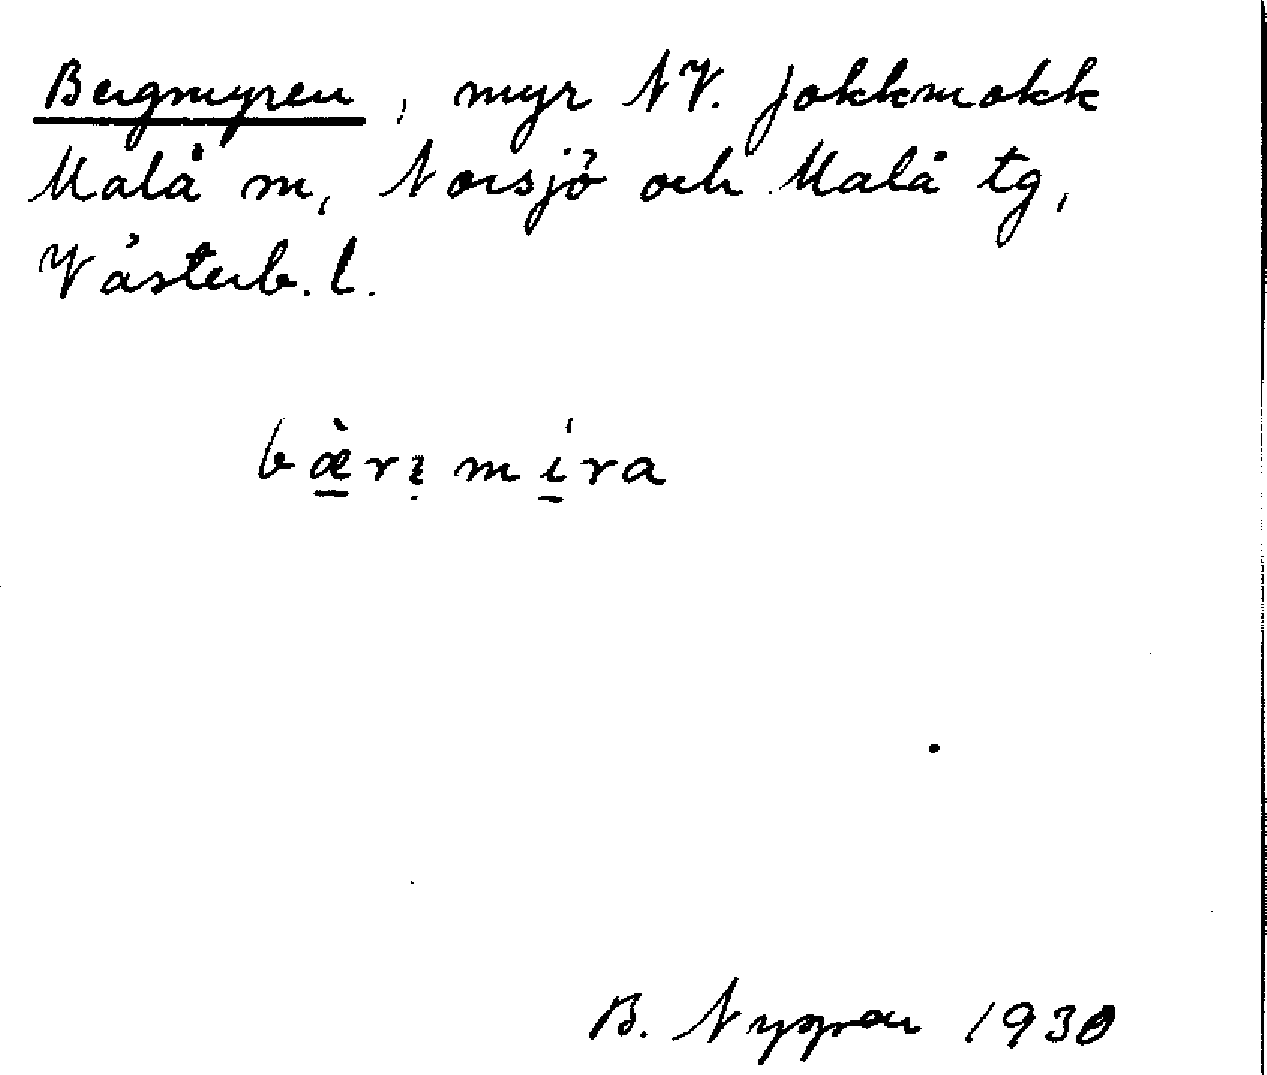 Bergmyren, myr NV. Jokkmokk
Malå m, Norsjö och Malå tg,
Västerb. l.
bæ̀rı̣ míra
B. Nygren 1930